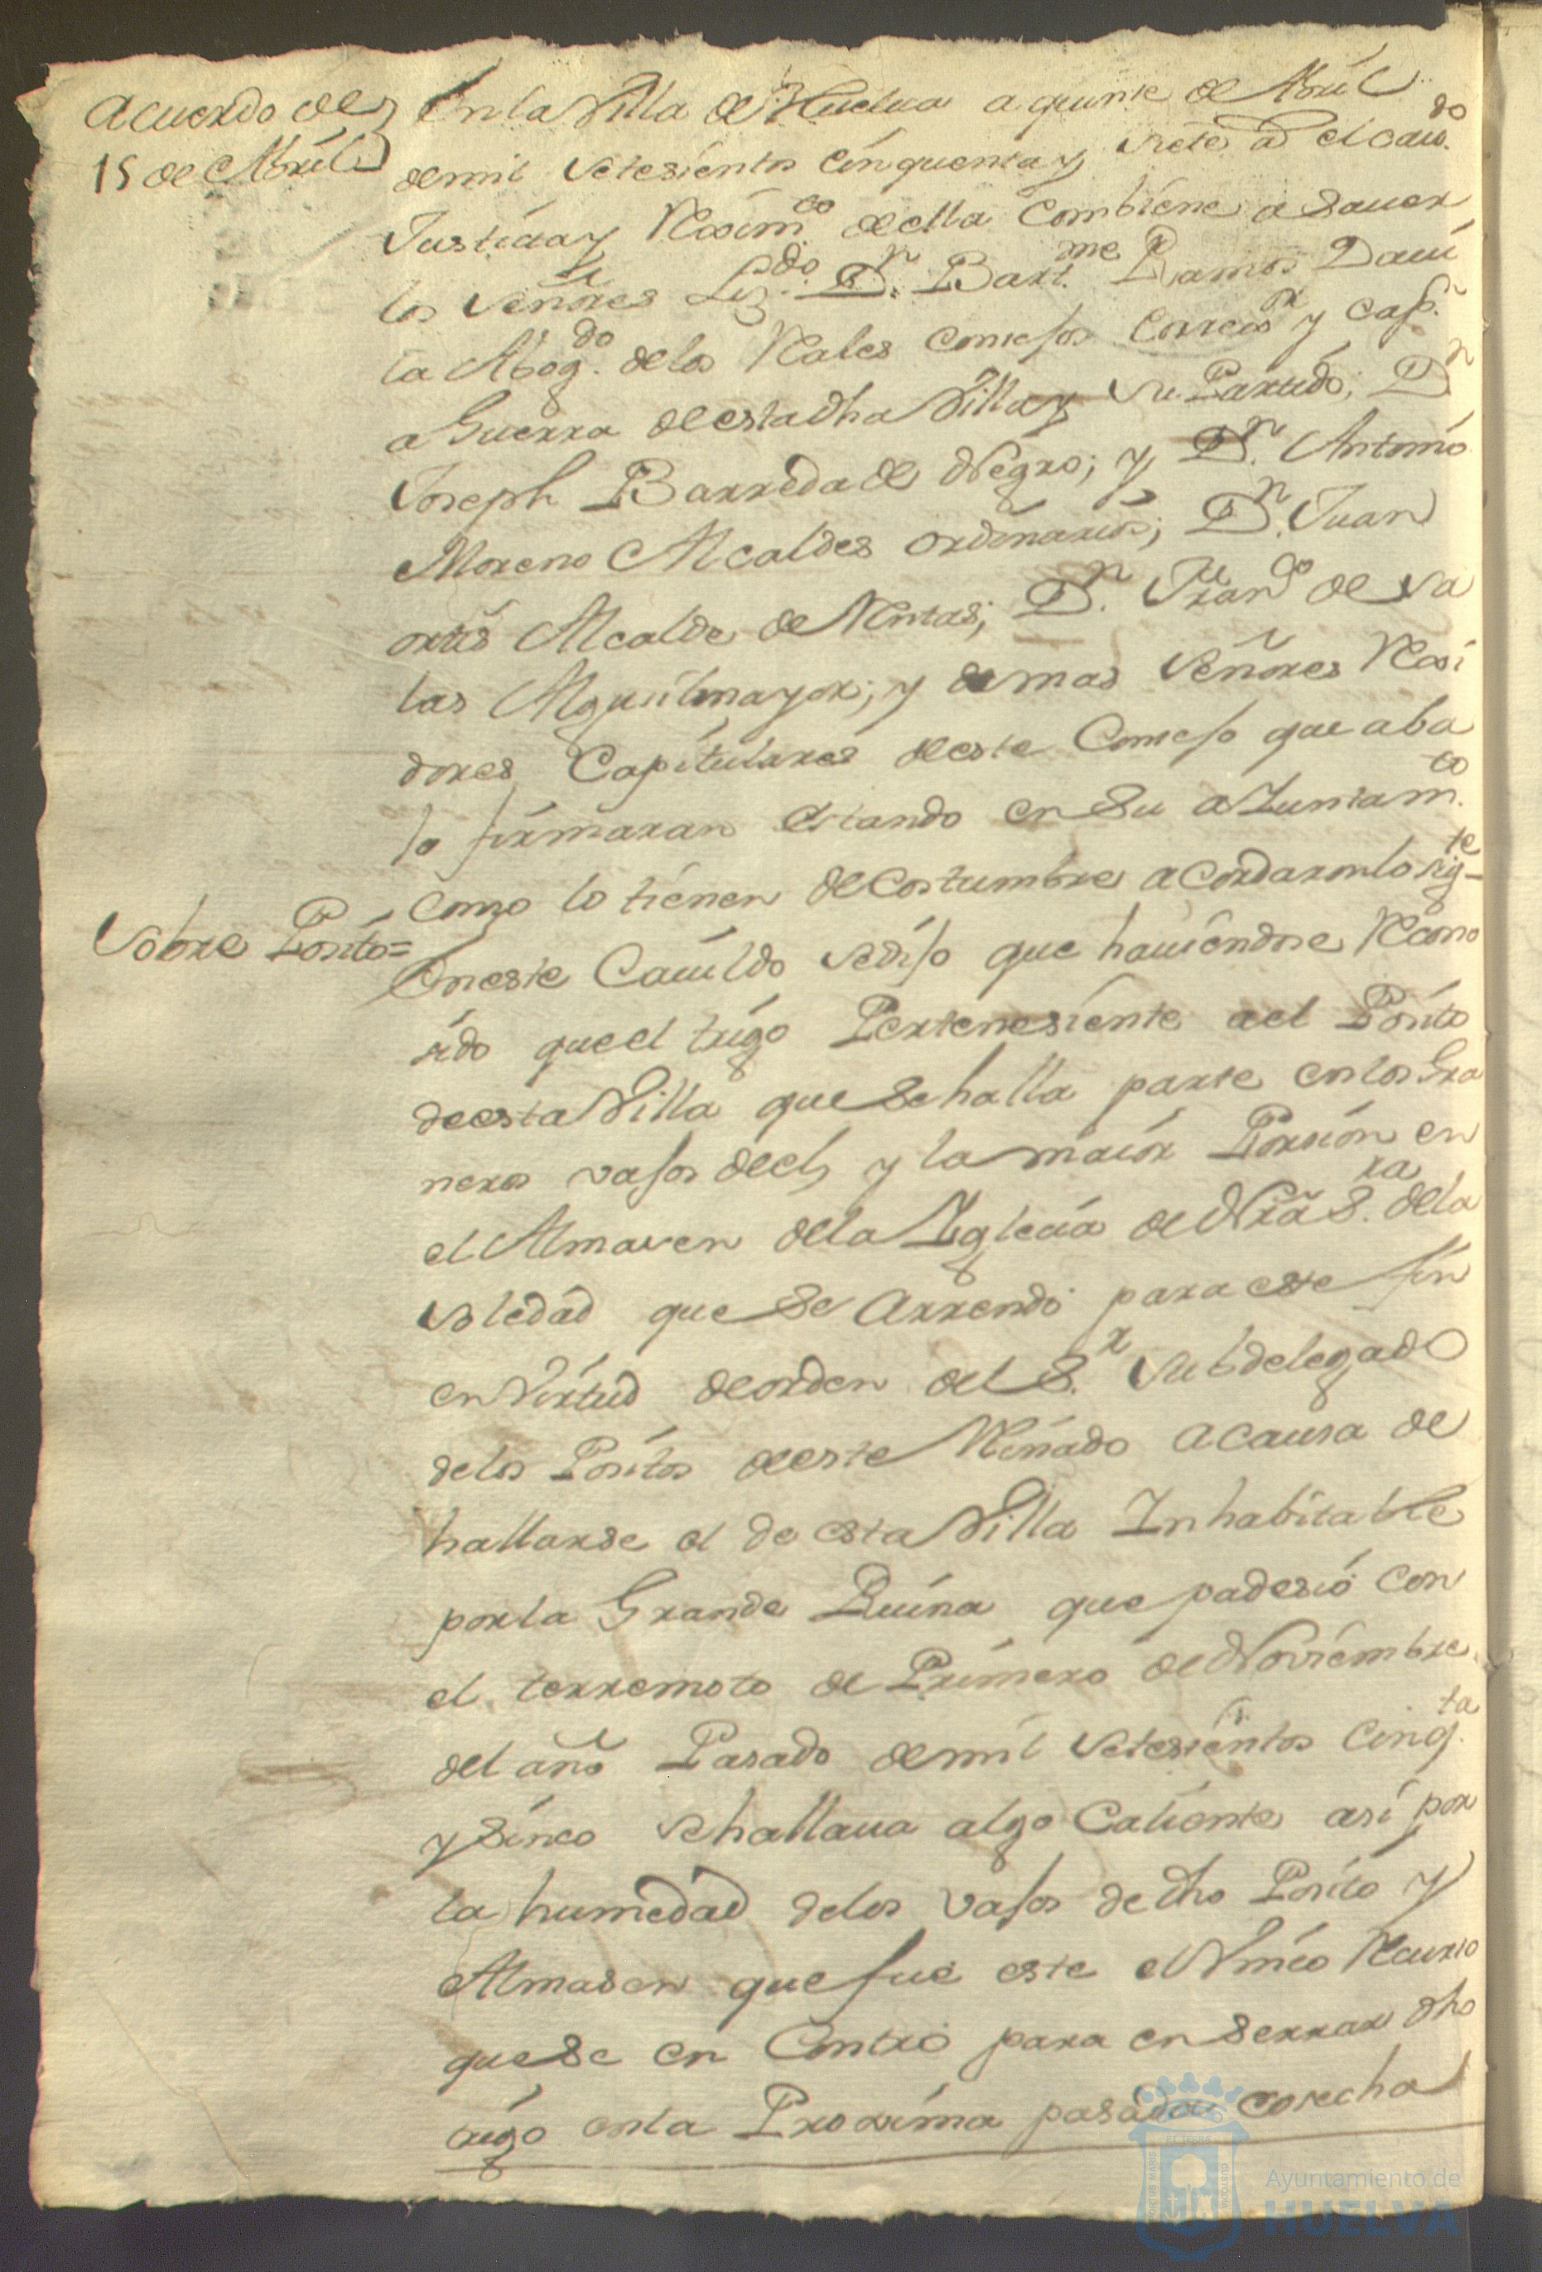 Acuerdo de
15 de Abril
En la Villa de Huelva a quinse de Abril
de mil setesientos cinquenta y siete as el cavdo.
Justicia y Reximto de ella combiene a saver
los señores Lizdo. Dn. Bartme. Ramos Davi
la Abogdo. de los Rales consejos Correxor y Capn.
a Guerra de esta dha Villa y su Partido; Dn
Joseph Barreda de Negro; y Dn. Antonio
Moreno Alcaldes ordinarios; Dn. Juan
ortis Alcalde de Rentas; Dn. Franco de Sa
las Alguilmayor; y demas señores Rexi
dores Capitulares de este Consejo que aba
jo firmaran estando en su aiuntamto.
como lo tienen de costumbre acordaron lo sigte
Sobre Posito=
En este Cavildo se dijo que haviendose Recono
sido que el trigo Pertenesiente a el Posito
de esta Villa que se halla parte en los Gra
neros vasos de el, y la maior Porsion en
el Almasen de la Yglecia de Nra. Sra. de la
Soledad que se Arrendó para este fin
en Virtud de orden del Sr. Subdelegado
de los Positos de este Reinado a causa de
hallarse el de esta Villa Inhabitable
por la Grande Ruina que padesió con
el terremoto de Primero de Noviembre
del año Pasado de mil setesientos cinqta.
y sinco se hallava algo Caliente asi por
la humedad de los vasos de dho Posito y
Almasen que fue este el Unico Recurso
que se encontró para enserrar dho
trigo en la Proxima pasada cosecha
Ayuntamiento de
HUELVA